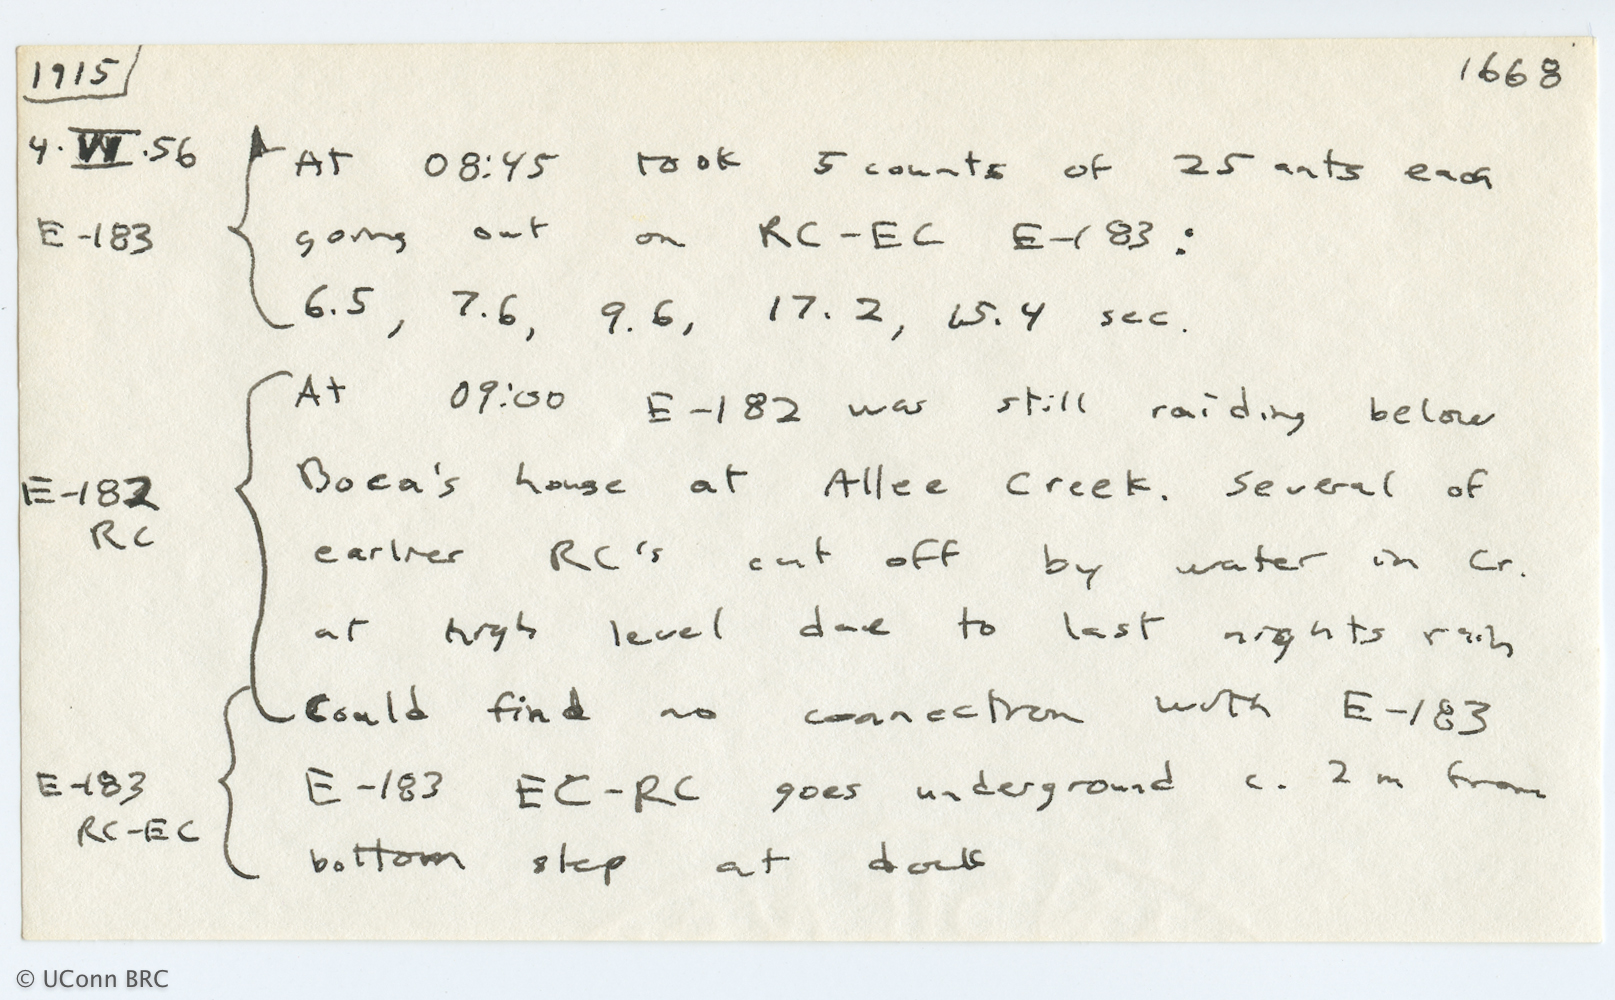 1915 1668
4.VI.56 At 08:45 took 5 counts of 25 ants each
E-183 going out on RC-EC E-183:
6.5, 7.6, 9.6, 17.2, 15.4 sec.
At 09:00 E-182 was still raiding below
E-182 Boca's house at Allee Creek. Several of
RC earlier RC's cut off by water in Cr.
at high level due to last nights rain
Could find no connection with E-183
E-183 E-183 EC-RC goes underground c. 2 m from
RC-EC
bottom step at dock
© UConn BRC